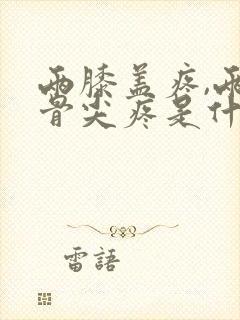 两膝盖疼,两
骨尖疼是什
雷語